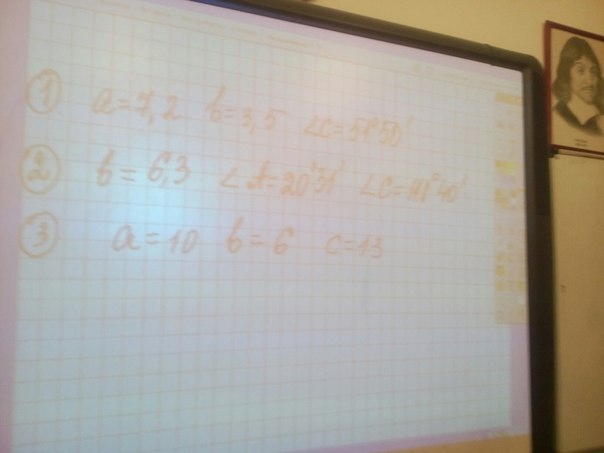 ① a=7,2 b=3,5 ∠C=51°50'
② b=6,3 ∠A=20°31' 40'
③ a=10 b=6 c=13